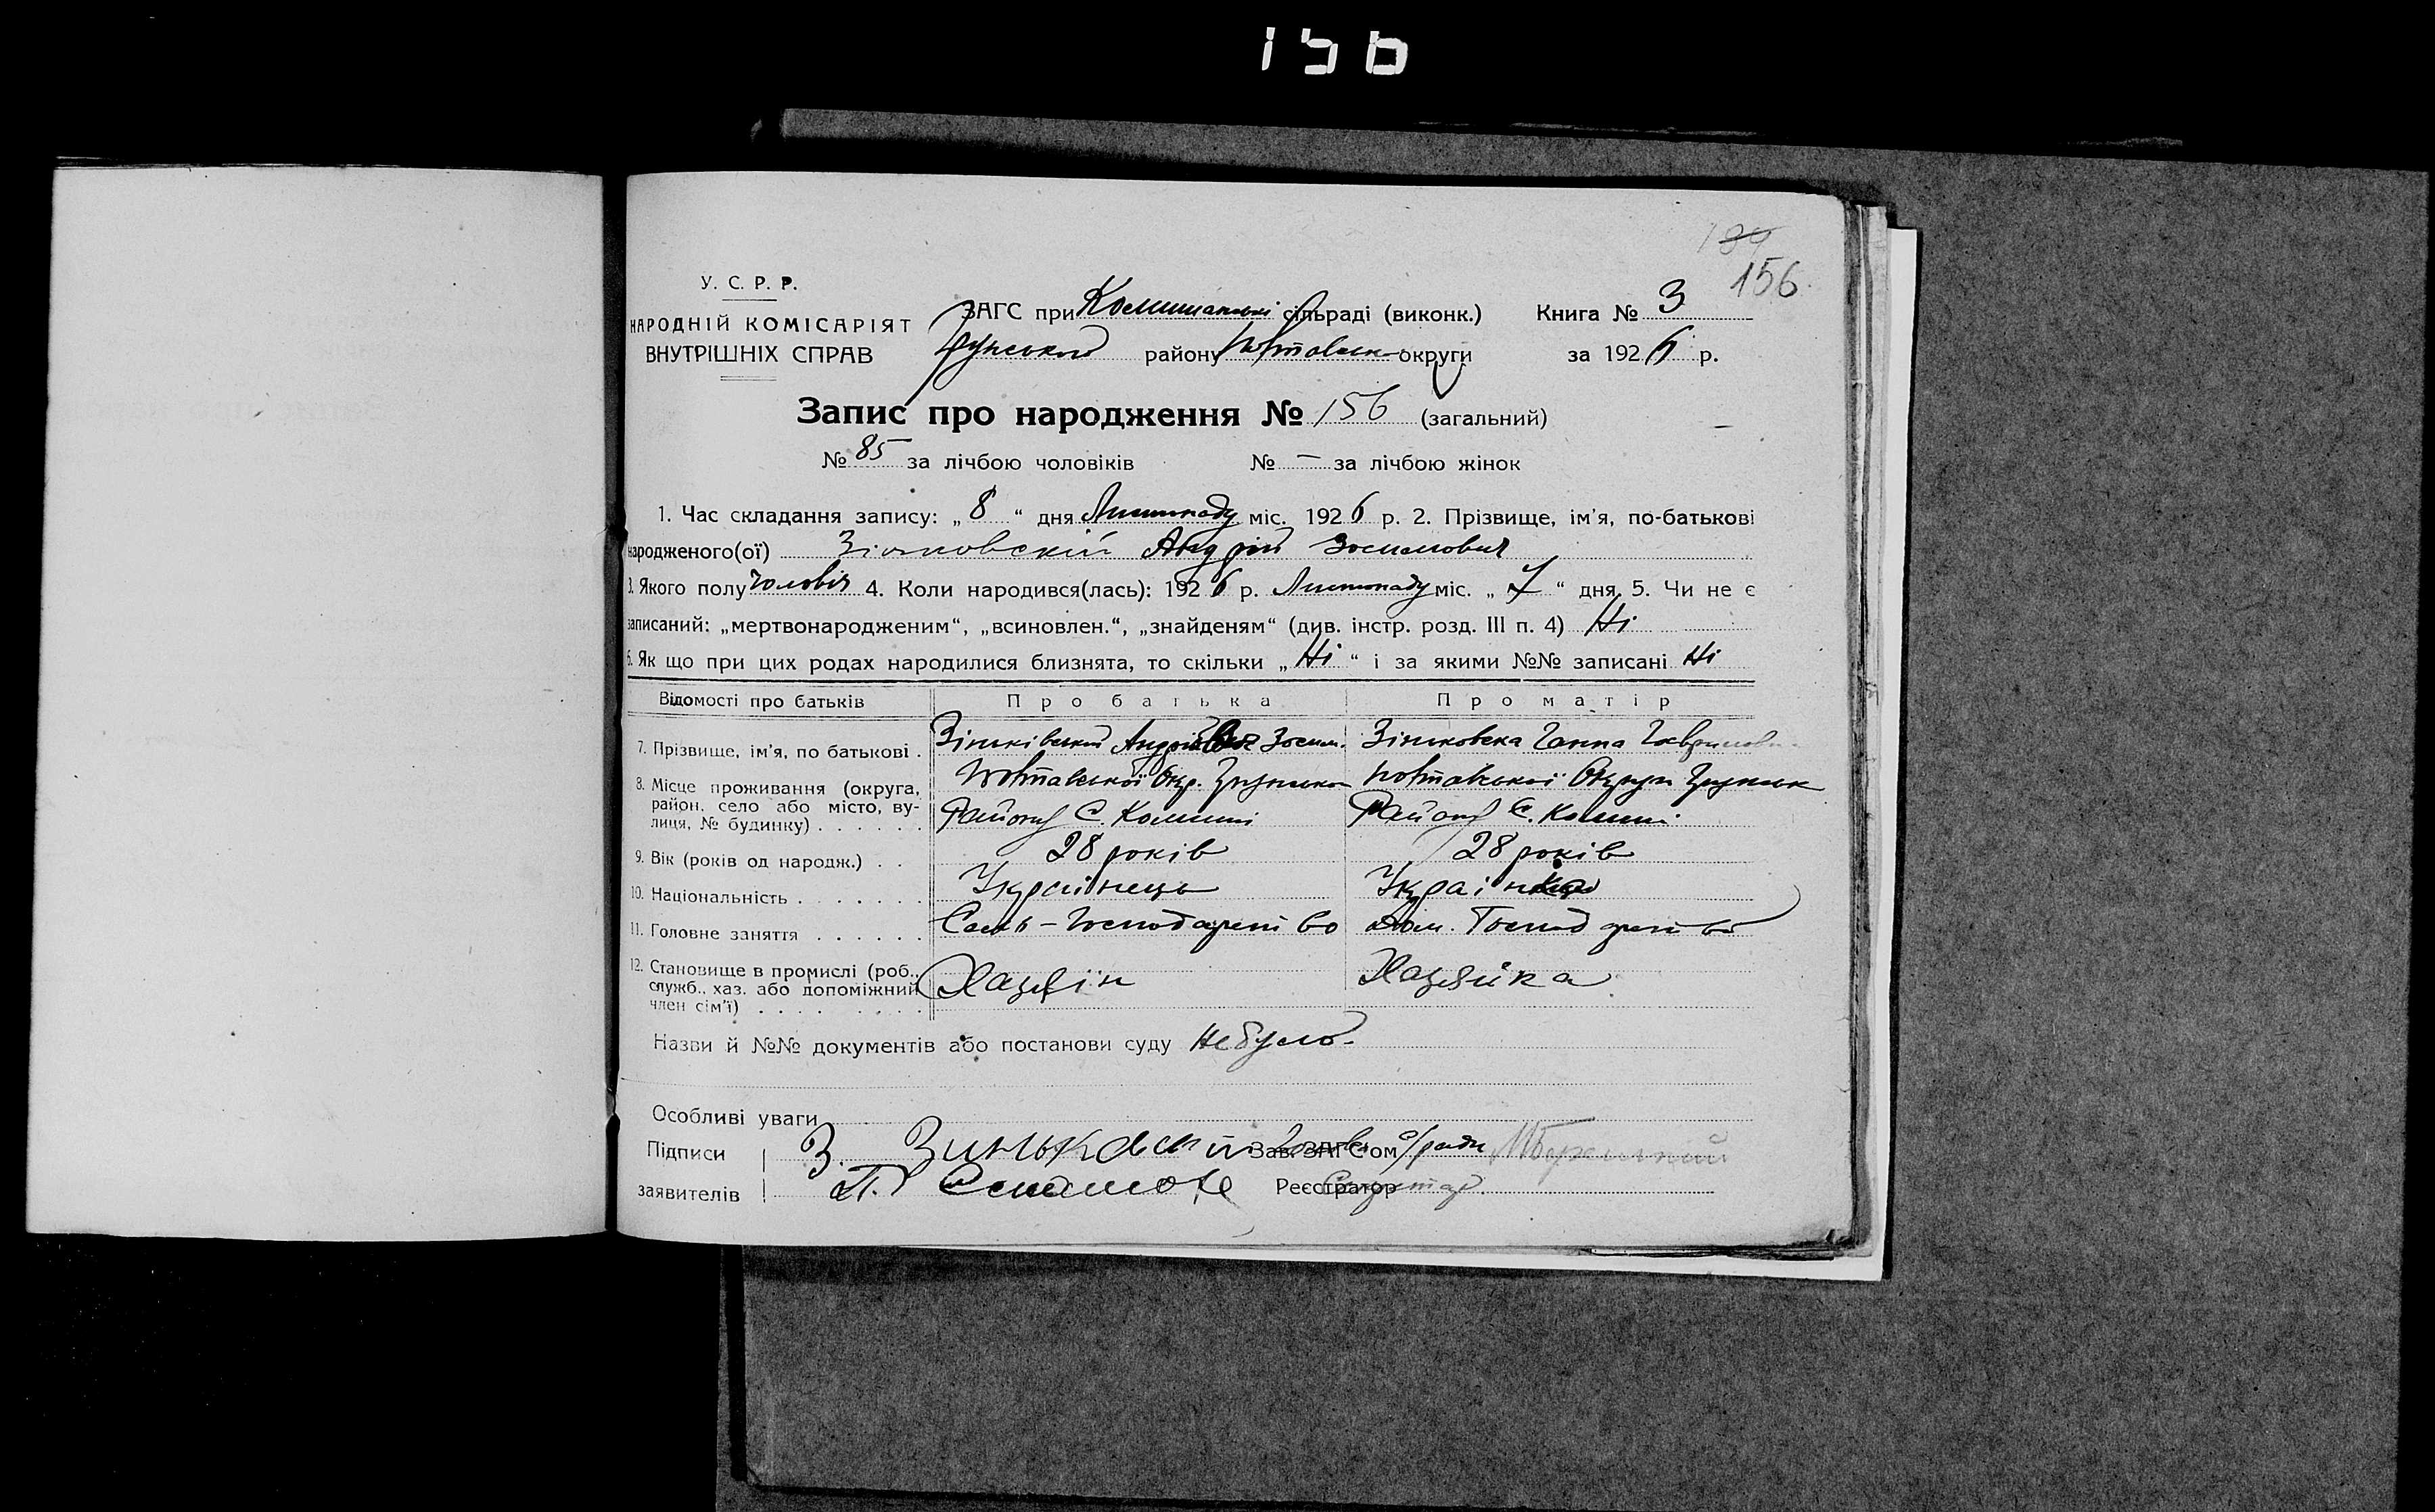 156
139
156.
У. С. Р. Р.
НАРОДНІЙ КОМІСАРІЯТ
ВНУТРІШНІХ СПРАВ
ЗАГС при сільраді (виконк.) Книга № 3
району округи за 1926 р.
Запис про народження № 156 (загальний)
№ 85 за лічбою чоловіків № — за лічбою жінок
1. Час складання запису: „8“ дня Листопаду міс. 1926 р. 2. Прізвище, ім'я, по-батькові
народженого(ої) Зіньковскій Андрій Зосимович
3. Якого полу чоловіч 4. Коли народився(лась): 1926 р. Листопаду міс. „7“ дня. 5. Чи не є
записаний: „мертвонародженим“, „всиновлен.“, „знайденям“ (див. інстр. розд. III п. 4) Ні
6. Як що при цих родах народилися близнята, то скільки „Ні“ і за якими №№ записані Ні
Відомості про батьків Про батька Про матір
7. Прізвище, ім'я, по батькові . Зіньківський Зосим. Зіньковска Ганна
8. Місце проживання (округа, Полтавської Окр. Полтавської Округи
район, село або місто, ву- Району С. Комиші Району С. Комиші
лиця, № будинку) . . . . . .
9. Вік (років од народж.) . . 28 років 28 років
10. Національність . . . . . . . Українець Українка
11. Головне заняття . . . . . . Сель-Господарство Дом. Господарство
12. Становище в промислі (роб., Хазяїн Хазяйка
служб., хаз. або допоміжний
член сім'ї) . . . . . . . . .
Назви й №№ документів або постанови суду Не було
Особливі уваги
Підписи З. Зиньковский Зав. ЗАГС'ом Голова с/ради
заявителів П. Реєстратор Секретар.